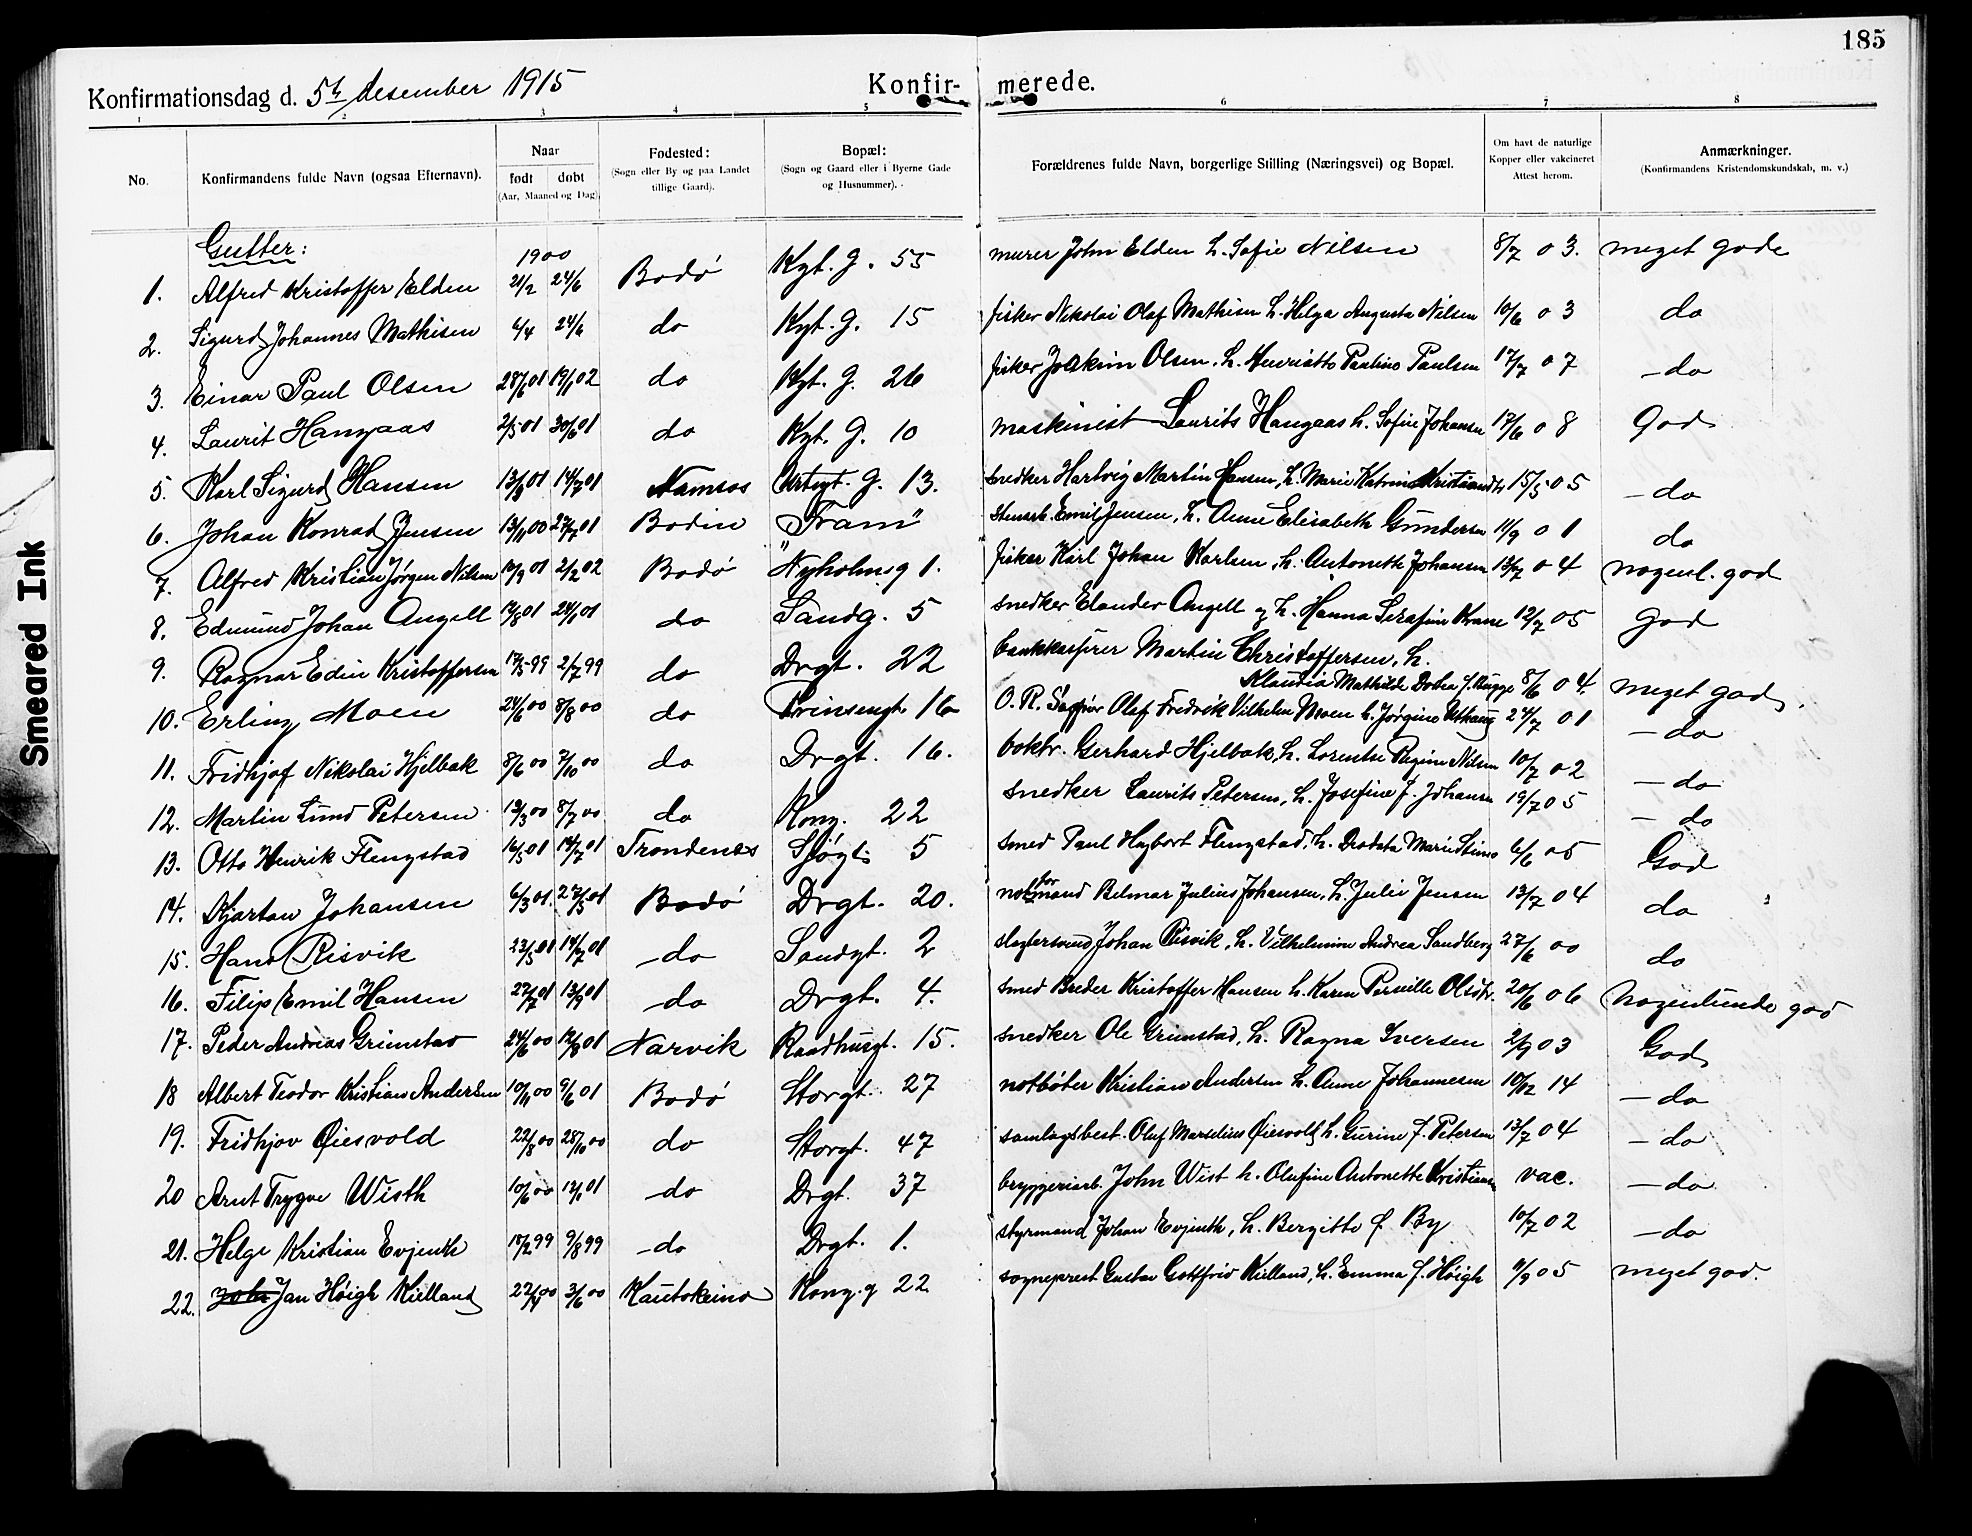 185
Konfirmationsdag d. 5te desember 1915 Konfir- merede.
1 2 3 4 5 6 7 8
No. Konfirmandens fulde Navn (ogsaa Efternavn). Naar født døbt (Aar, Maaned og Dag). Fødested: (Sogn eller By og paa Landet tillige Gaard). Bopæl: (Sogn og Gaard eller i Byerne Gade og Husnummer). Forældrenes fulde Navn, borgerlige Stilling (Næringsvei) og Bopæl. Om havt de naturlige Kopper eller vakcineret Attest herom. Anmærkninger. (Konfirmandens Kristendomskundskab, m. v.)
Gutter: 1900
1. Alfred Kristoffer Elden 21/2 24/6 Bodø Kgt. g. 55 murer John Elden h. Sofie Nilsen 8/7 03. meget gode
2. Sigurd Johannes Mathisen 4/4 24/6 do Kgt. g. 15 fisker Nikolai Olaf Mathisen h. Helga Augusta Nilsen 10/6 03 do
3. Einar Paul Olsen 28/6 01 19/1 02 do Kgt. g. 26 fisker Joakim Olsen, h. Henriette Pauline Paulsen 17/7 07 - do
4. Laurit Hangaas 2/5 01 30/6 01 do Kgt. g. 10 maskinist Laurits Hangaas h. Sofie Johansen 17/6 08 God
5. Karl Sigurd Hansen 13/3 01 14/7 01 Namsos g. 13. snedker Hartvig Martin Hansen, h. Marie Katrine 15/5 05 - do
6. Johan Konrad Jensen 13/11 00 27/7 01 Bodin "Fram" Emil Jensen, h. Anne Elisabeth Gundersen 11/9 01 do
7. Alfred Kristian Jørgen Nilsen 01 2/2 02 Bodø Nyholmsg 1. fisker Karl Johan Karlsen, h. Antonette Johansen 13/7 04 nogenl. god
8. Edmund Johan Angell 01 01 do Sandg. 5 snedker Elander Angell og h. Hanna Serafine Krane 12/7 05 God
9. Ragnar Edin Kristoffersen 17/5 99 2/7 99 do Drgt. 22 bankkasserer Martin Christoffersen, h.
Klaudia Mathilde Dorthea f. Bugge 8/6 04. meget god
10. Erling Moen 24/6 00 8/8 00 do Prinsensgt. 16 O. R. Olaf Fredrik Vilhelm Moen h. Jørgine 24/7 01 - do
11. Fridhjof Nikolai Hjelbak 8/6 00 7/10 00 do Drgt. 16. boktr. Gerhard Hjelbak, h. Lorentse Regine Nilsen 10/7 02 - do
12. Martin Lund Petersen 13/3 00 8/7 00 do Kong. 22 snedker Laurits Petersen, h. Josefine f. Johansen 19/7 05 - do
13. Otto Henrik Flengstad 16/5 01 14/7 01 Trondenes Sjøgt. 5 smed Paul Hagbart Flengstad, h. Marie 6/6 05 God
14. Kjartan Johansen 6/3 01. 27/5 01 Bodø Drgt. 20. Julius Johansen, h. Julie Jensen 13/7 04 do
15. Hans Risvik 23/5 01 14/7 01 - do Sandgt. 2 slagtersvend Johan Risvik, h. Vilhelmine Andrea Sandberg 27/6 00 do
16. Filip Emil Hansen 27/7 01 13/9 01 - do Drgt. 4. smed Breder Kristoffer Hansen h. Karen Pernille Olsdtr. 20/6 06 Nogenlunde god
17. Peder Andreas Grimstad 24/6 00 12/8 01 Narvik Raadhusgt. 15. snedker Ole Grimstad, h. Ragna Iversen 2/9 03 God
18 Albert Teodor Kristian Andersen 10/11 00 9/6 01 Bodø Storgt. 27 notbøter Kristian Andersen h. Anne Johannesen 10/12 14 - do
19. Fridhjov Øiesvold 22/8 00 28/10 00 do Storgt. 47 samlagsbest. Oluf Marselius Øiesvold h. Gurine f. Petersen 13/7 04 - do
20 Arnt Trygve Wisth 10/6 00 13/1 01 - do Drgt. 37 bryggeriarb. John Wist h. Olufine Antonette Kristiansen vac. - do
21. Helge Kristian Evjenth 18/2 99 9/8 99 - do Drgt. 1. styrmand Johan Evjenth, h. Bergitte f. By 10/7 02 - do
22. Jan Høigh Kielland 22/4 00 3/6 00 Kautokeino Kong. g 22 sogneprest Gustav Gottfrid Kielland, h. Emma f. Høigh 11/9 05 meget god.
Smeared Ink